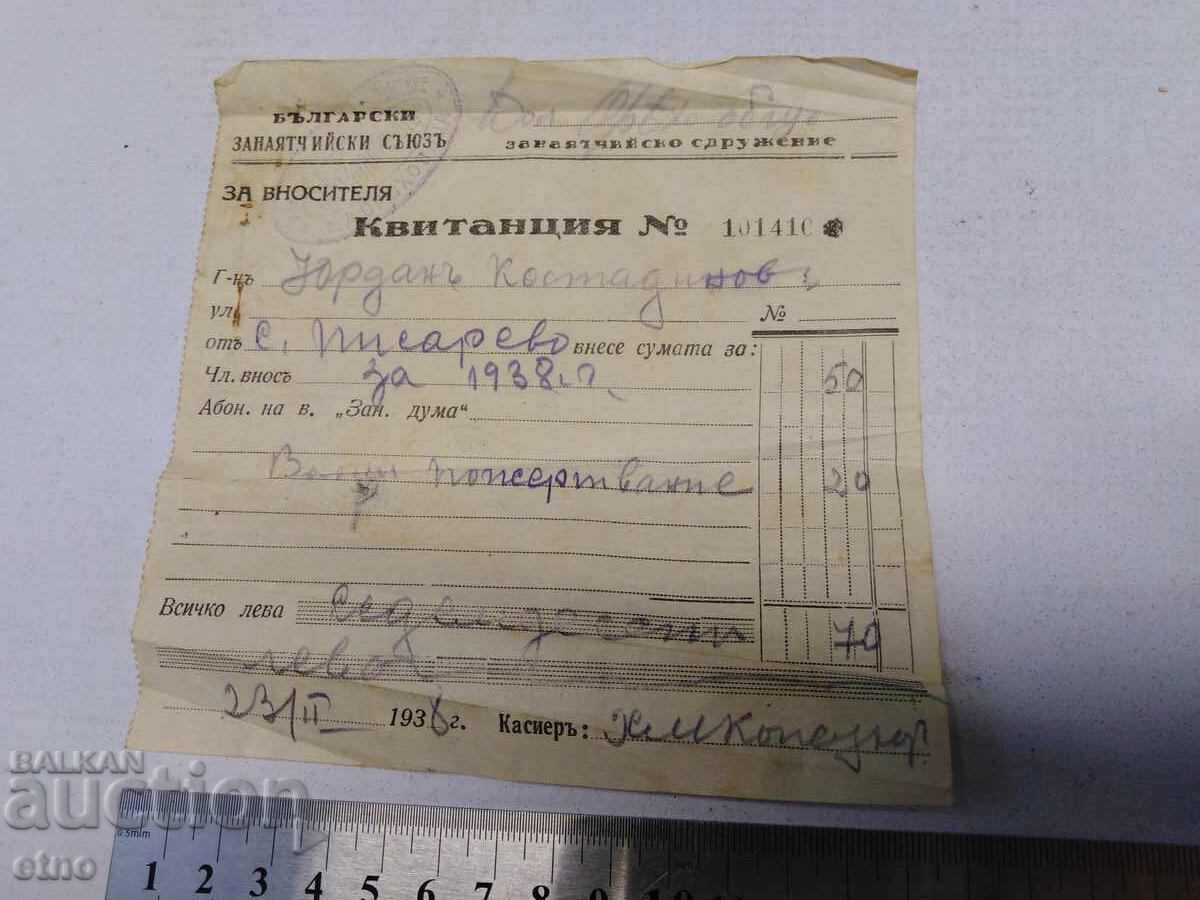 БЪЛГАРСКИ
ЗАНАЯТЧИЙСКИ СЪЮЗЪ
ЗАНАЯТЧИЙСКО СДРУЖЕНИЕ
ЗА ВНОСИТЕЛЯ
КВИТАНЦИЯ № 101410
Г-нъ Юрданъ Костадинов
ул. №
отъ с. Писарево внесе сумата за:
Чл. вносъ за 1938 г. 50
Абон. на в. „Зан. дума“
пожертвание 20
Всичко лева седемдесет 70
лева
23/II 1938 г. Касиеръ:
BALKAN
auction
etno
0.5m/m
1 2 3 4 5 6 7 8 9 10